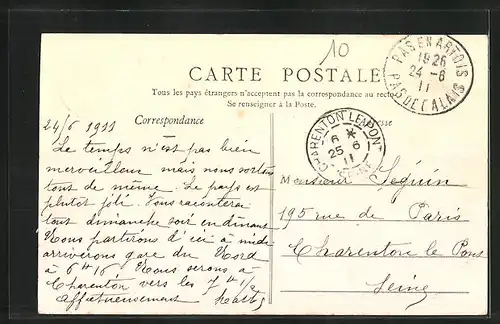 10
CARTE POSTALE
Tous les pays étrangers n'acceptent pas la correspondance au recto
Se renseigner à la Poste.
PAS EN ARTOIS
1926
24 - 6
11
PAS DE CALAIS
CHARENTON LE PONT
6 *
25 6
11
SEINE
Correspondance
24/6 1911
Le temps n'est pas bien
merveilleux mais nous sortons
tout de même. Le pays est
plutôt joli. Vous raconterai
tout dimanche soir en dinant
Nous partirons d'ici à midi
arriverons gare du Nord
à 6 H 16 Nous serons à
Charenton vers les 7 H 1/2
Affectueusement
Monsieur Seguin
195 rue de Paris
Charenton le Pont
Seine